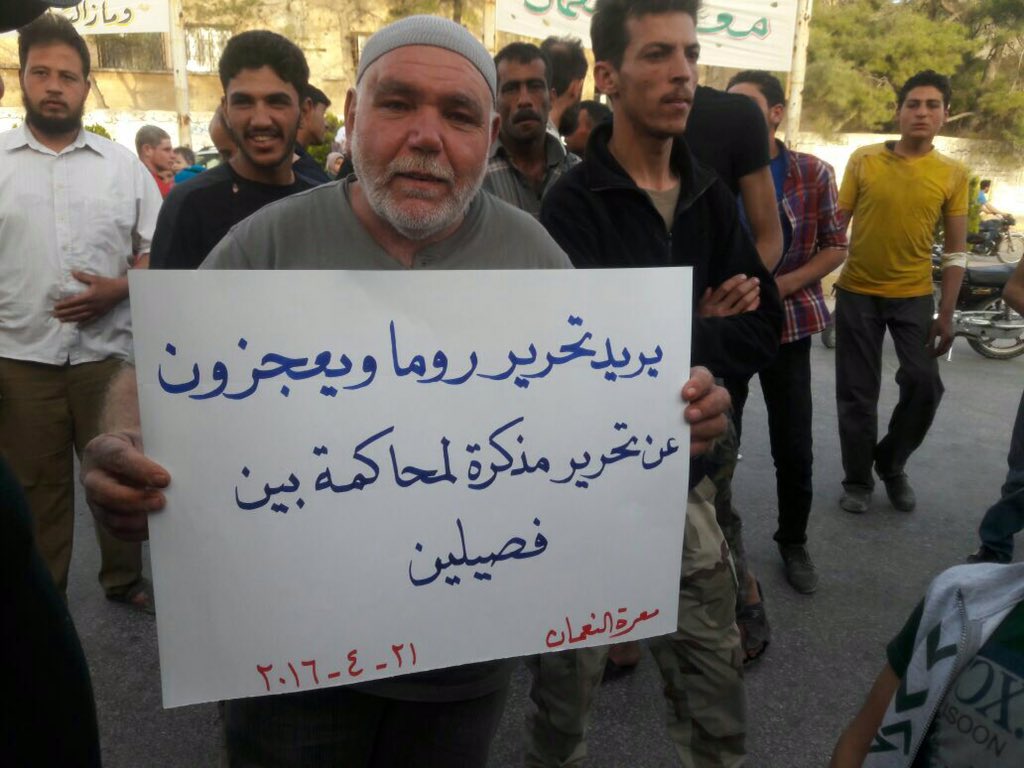 وما زال
معرة النعمان
يريد تحرير روما ويعجزون
عن تحرير مذكرة لمحاكمة بين
فصيلين
معرة النعمان
٢١ - ٤ - ٢٠١٦